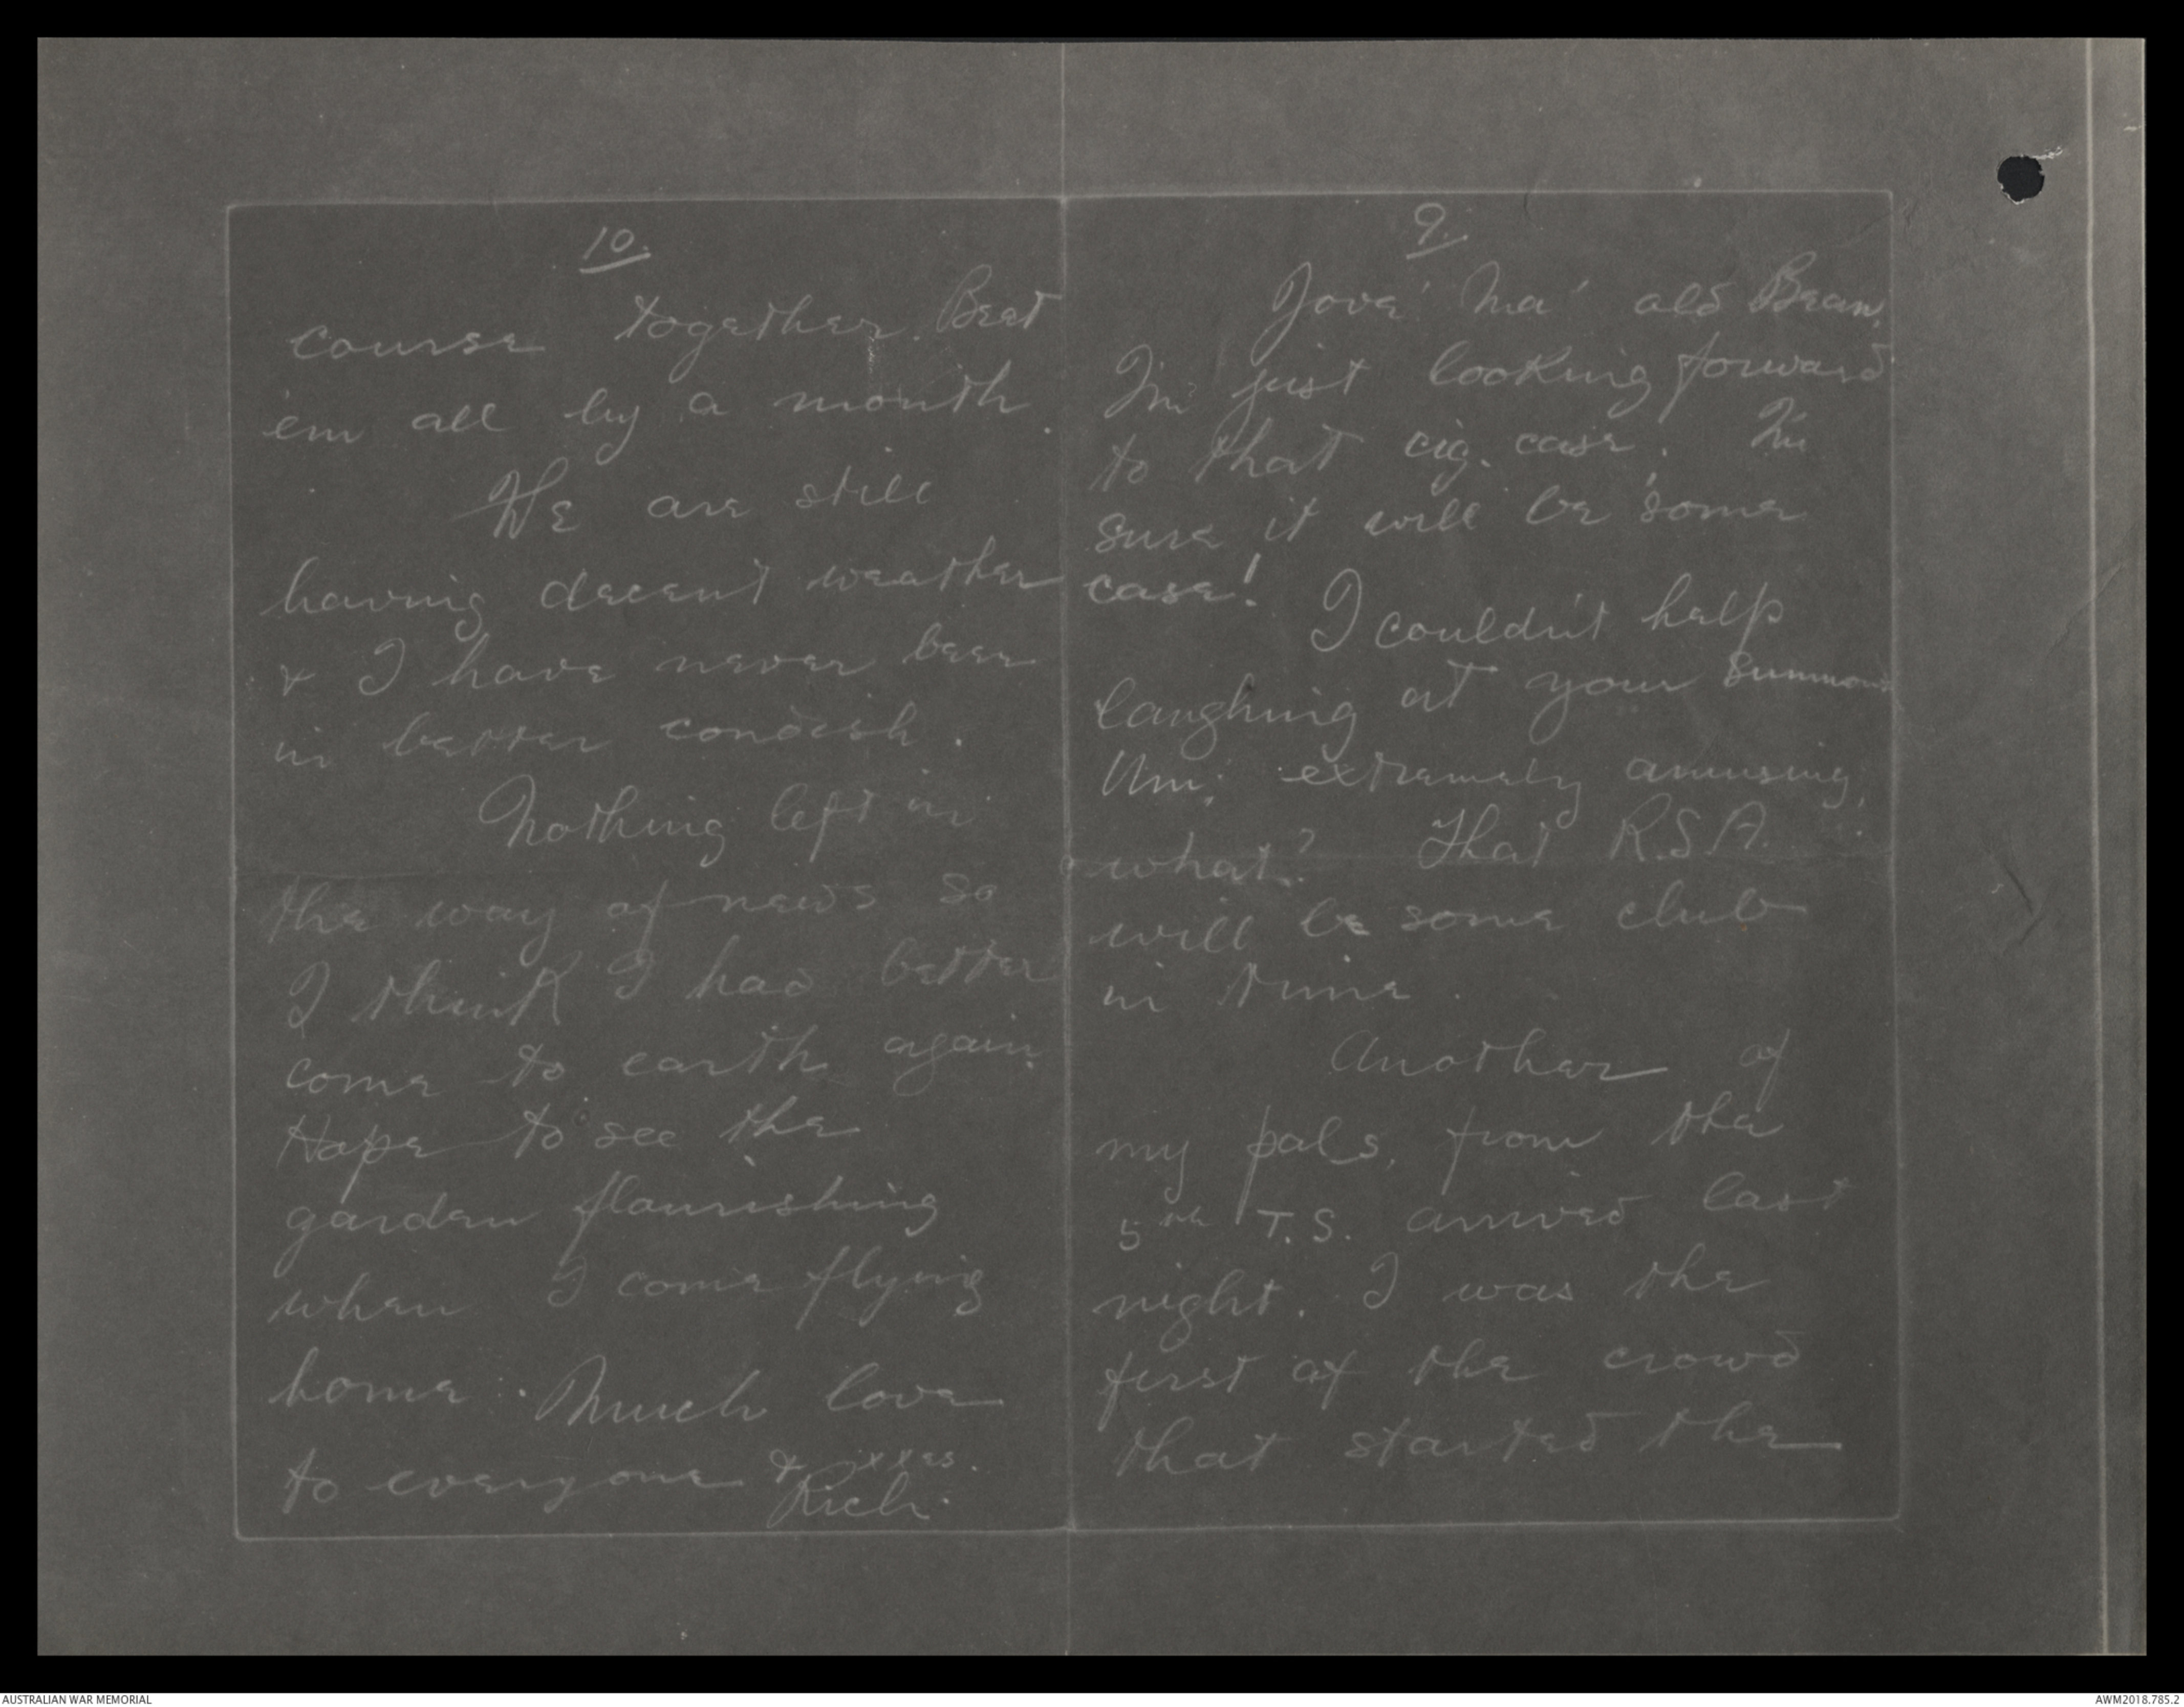 9.
Jove! Ma' old Bean,
I'm just looking forward
to that cig. case. I'm
sure it will be 'some
case!
I couldn't help
laughing at your summons
Um! extremely amusing,
what? That R.S.A.
will be some club
in time.
Another of
my pals, from the
5th T.S. arrived last
night. I was the
first of the crowd
that started the
10.
course together. Beat
'em all by a month.
We are still
having decent weather
& I have never been
in better condish.
Nothing left in
the way of news so
I think I had better
come to earth again.
Hope to see the
garden flourishing
when I come flying
home. Much love
to everyone & xxes.
Rich.
AUSTRALIAN WAR MEMORIAL
AWM2018.785.2